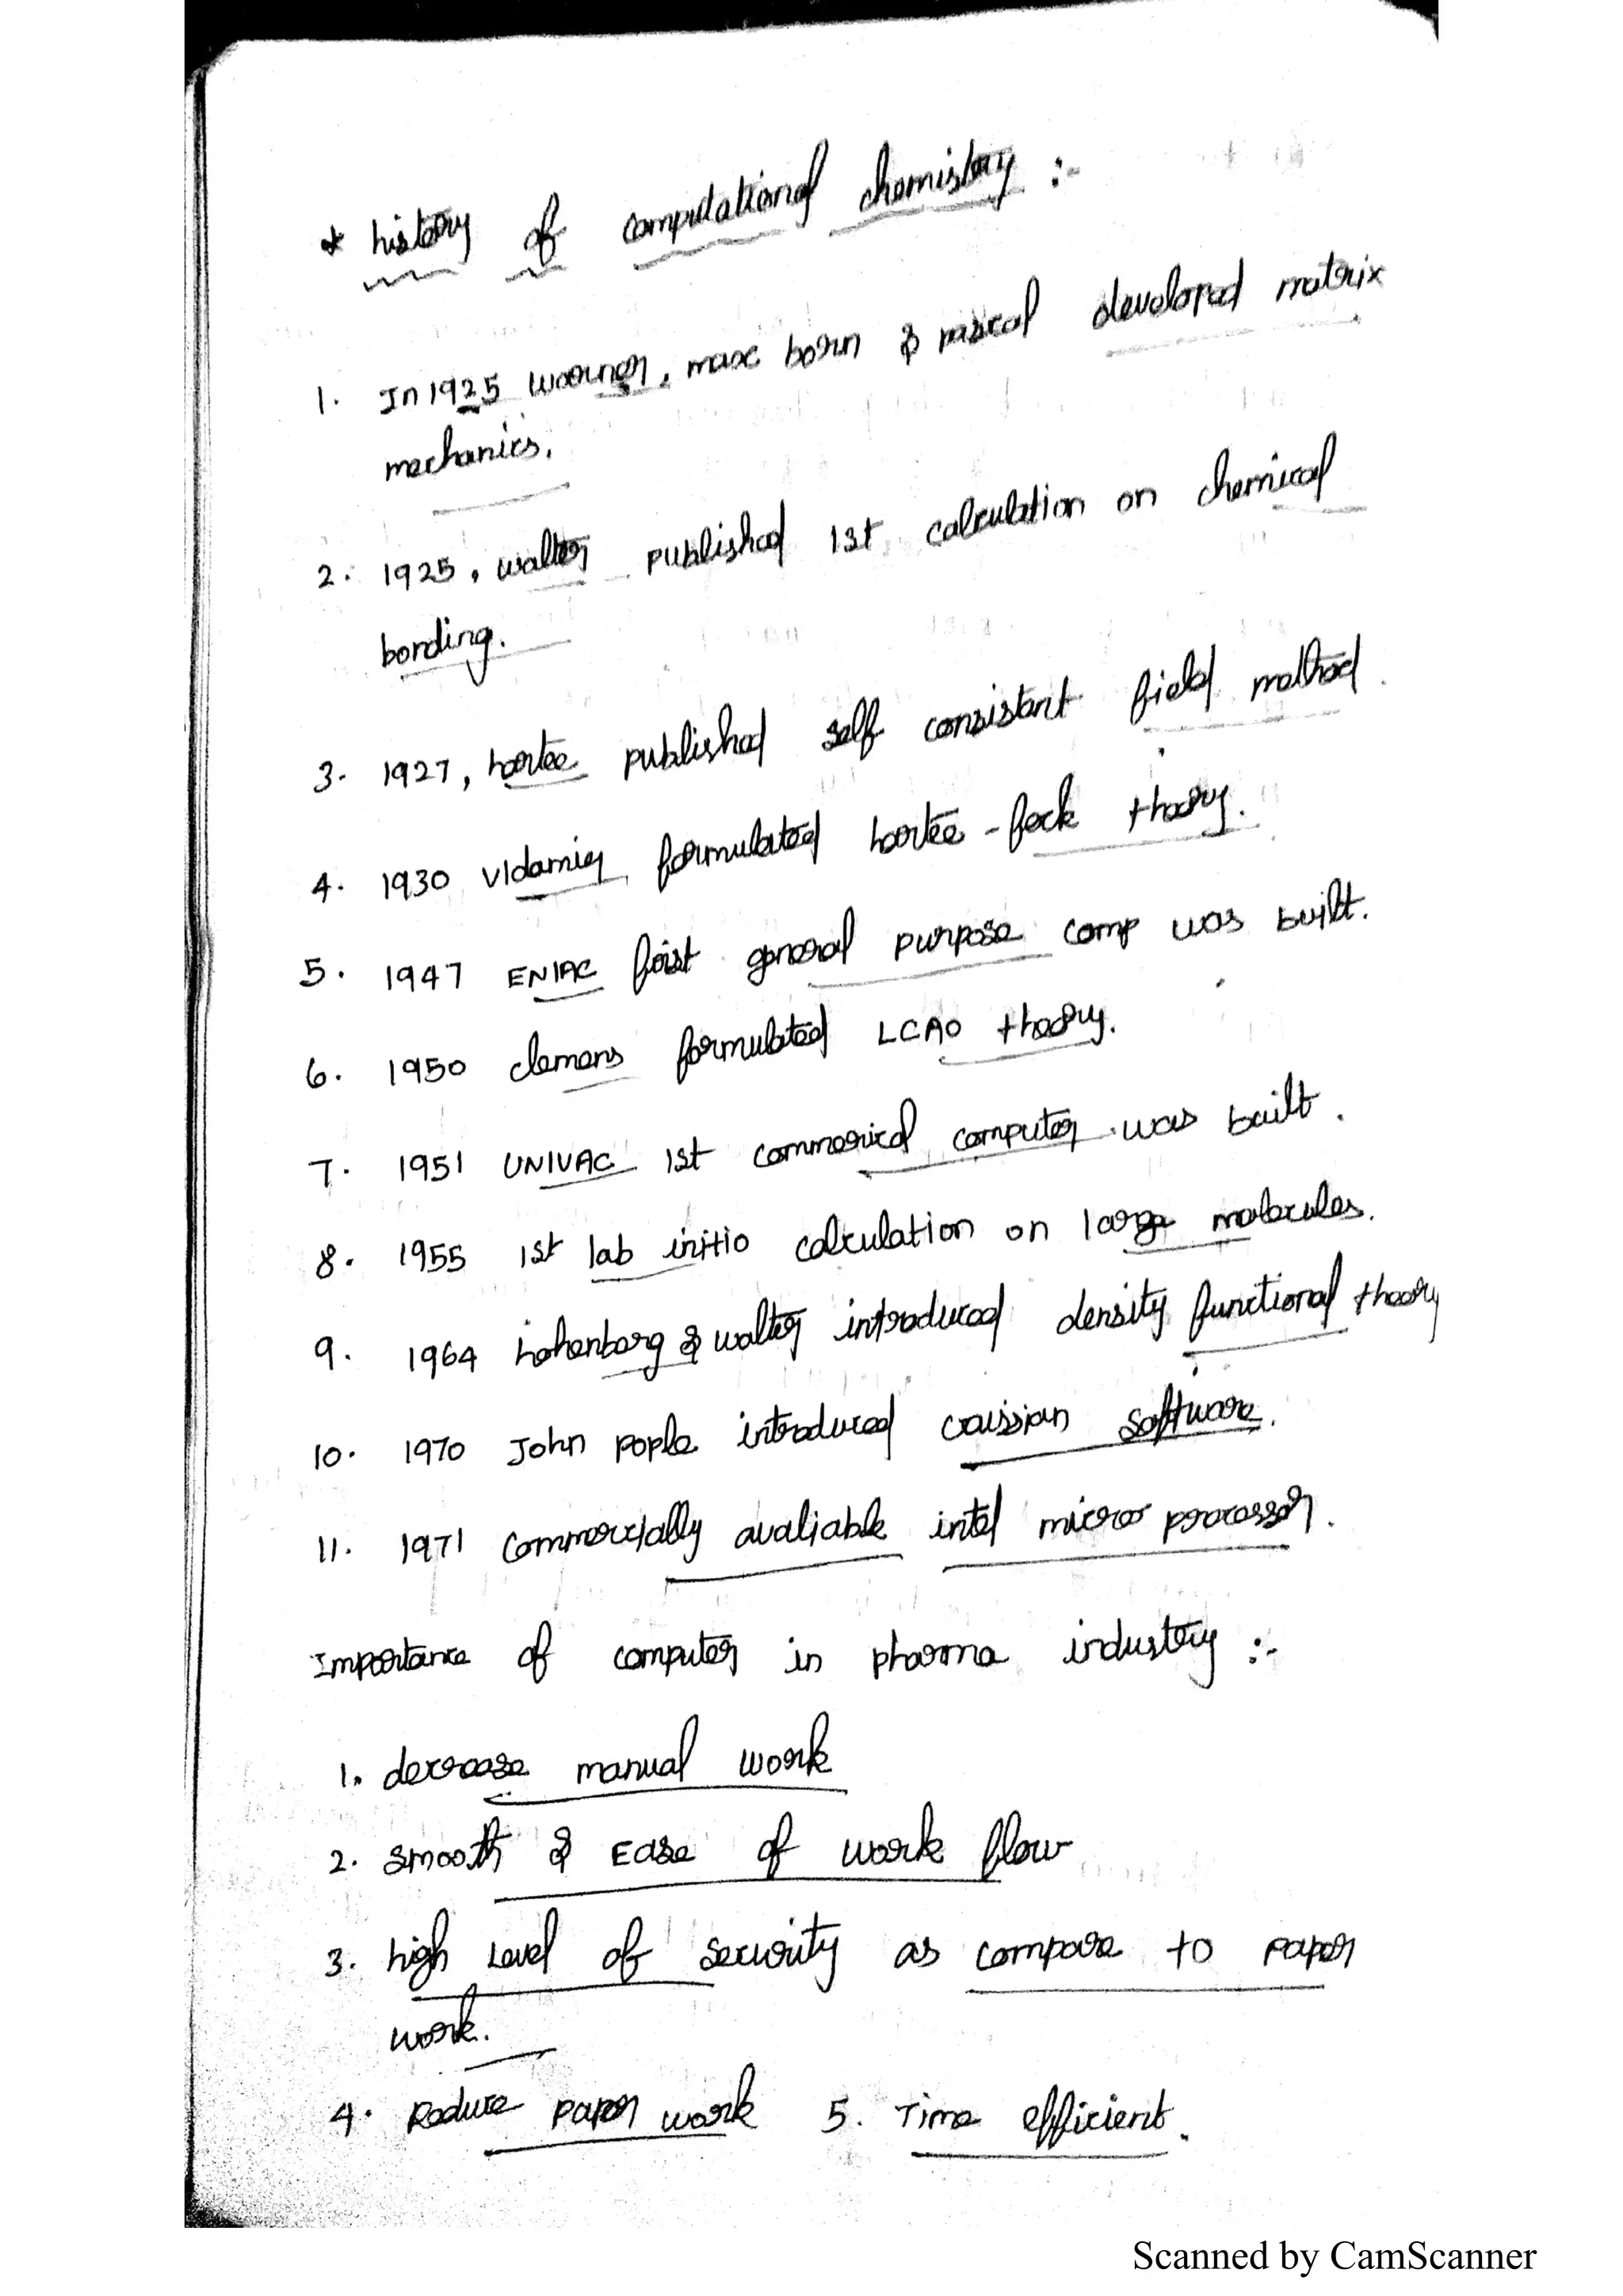 * history of computational chemistry :-
1. In 1925 Werner, max born & pascal developed matrix
mechanics.
2. 1925, walter published 1st calculation on chemical
bonding.
3. 1927, hartee published self consistant field method.
4. 1930 vldamir formulated hartee-fock theory.
5. 1947 ENIAC first general purpose comp was built.
6. 1950 clemens formulated LCAO theory.
7. 1951 UNIVAC 1st commerical computer was built.
8. 1955 1st lab initio calculation on large molecules.
9. 1964 hohenberg & walter introduced density functional theory
10. 1970 John pople introduced Gaissian software.
11. 1971 commercially avaliable intel micro processor.
Importance of computer in pharma industry :-
1. decrease manual work
2. smooth & Ease of work flow
3. high Level of security as compare to paper
work.
4. Reduce paper work 5. Time efficient.
Scanned by CamScanner